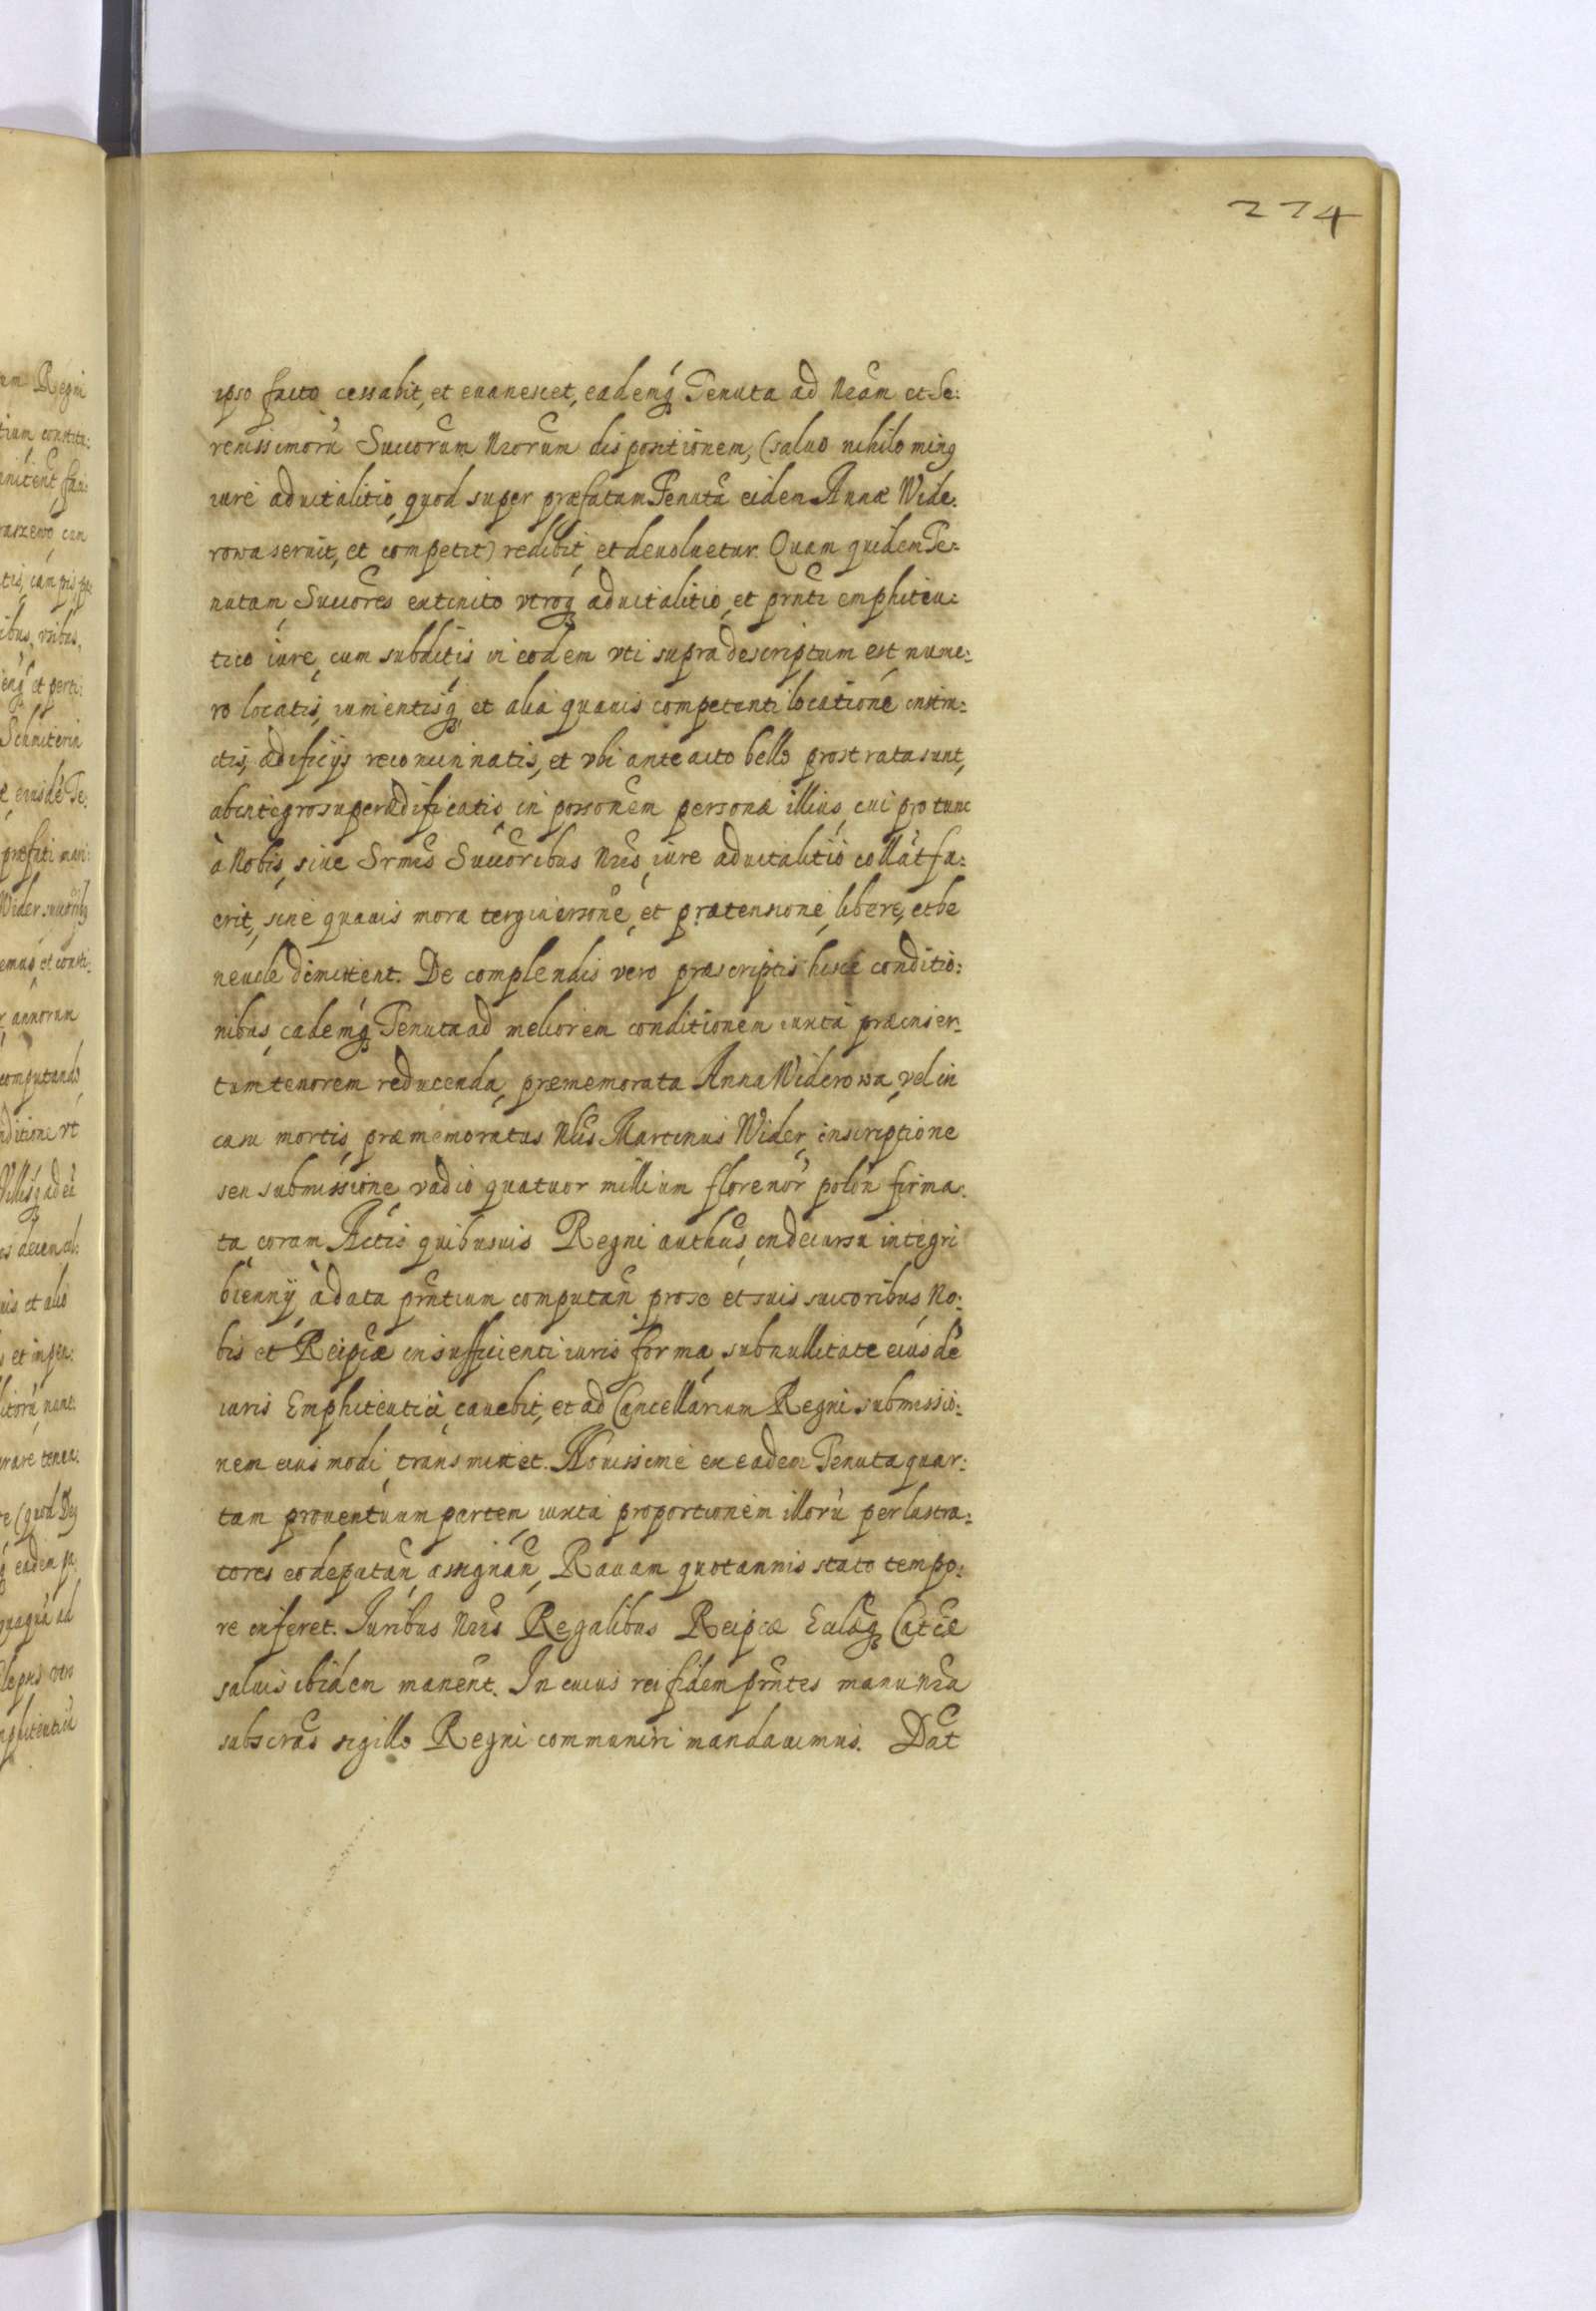 274
ipso facto cessabit, et euanescet, eademq́ Tenuta ad Nr̃am et Se:
renissimorũ Succorũm Nrorũm dispositionem, (saluo nihilominq
iure aduitalitio, quod super præfatam Tenutã eidem Annæ Wide:
rowa seruit, et competit) redibit, et deuoluetur. Quam quidem Te:
nutam Succores extincto vtroq́ aduitalitio, et prñti emphiteu:
tico iure, cum subditis in eodem vti supra descriptum est nume:
ro locatis, iumentisq́ et alia quauis competenti locatione instru:
ctis, ædificijs reconcinnatis, et vbi anteacto bello prostrata sunt,
abintegro superædificatis, in possonem personæ illius, cui pro tunc
à Nobis, siue Srmis Succoribus Nris, iure aduitalitio collat fu:
erit, sine quauis mora terginersone, et prætensione, libere, et be
neuole dimittent. De complendis vero præscriptis hisce conditio:
nibus, eademq́ Tenuta ad meliorem conditionem iuxta præinser:
tum tenorem reducenda, prememorata Anna Widerowa, vel in
casu mortis, præmemoratus Nlis Martinus Wider, inscriptione
seu submissione, vadio quatuor millium florenor polon firma:
ta, coram Actis quibusuis Regni authcis, in decursu integri
biennij, à data prñtium computañ pro se et suis succoribus, No:
bis et Reipcæ in sufficienti iuris forma, sub nullitate eiusdẽ
iuris Emphiteutici, cauebit, et ad Cancellariam Regni submissio:
nem eius modi, transmittet. Nouissime ex eadem Tenuta quar:
tam prouentuum partem, iuxta proportionem illorũ per lustra:
tores eo deputañ, assignañ, Rauam quotannis stato tempo:
re inferet. Iuribus Nris Regalibus Reipcæ Eclæq́ Catcæ
saluis ibidem manent. In cuius rei fidem prñtes manu Nra
subscras sigillo Regni communiri mandauimus. Dat